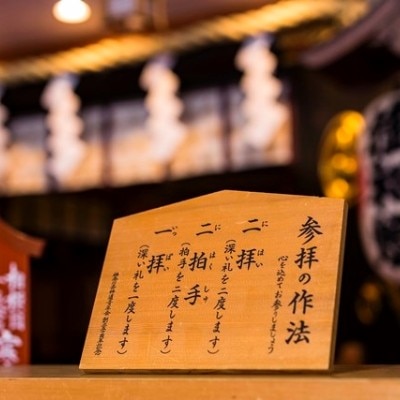 参拝の作法
心を込めてお参りしましょう
二拝
にはい
(深い礼を二度します)
二拍手
にはくしゅ
(拍手を二度します)
一拝
いっぱい
(深い礼を一度します)